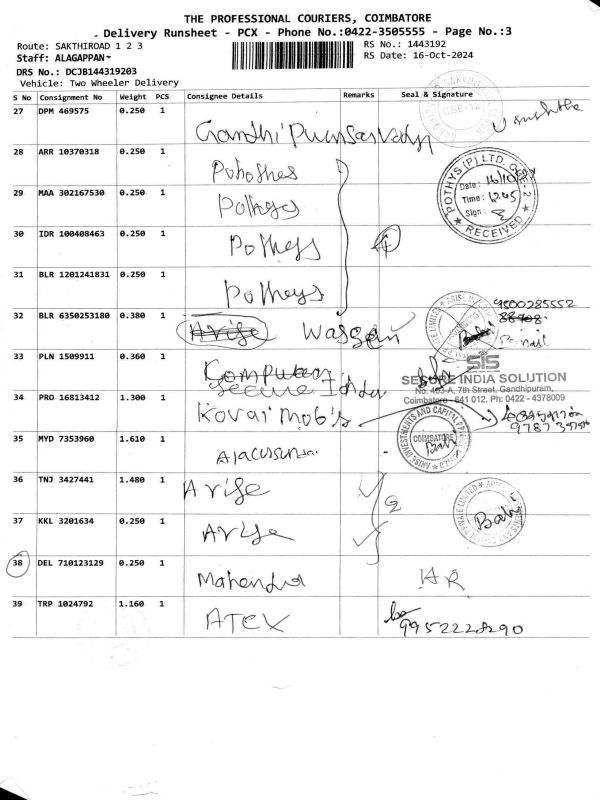 THE PROFESSIONAL COURIERS, COIMBATORE
. Delivery Runsheet - PCX - Phone No.:0422-3505555 - Page No.:3
Route: SAKTHIROAD 1 2 3
RS No.: 1443192
Staff: ALAGAPPAN-
RS Date: 16-Oct-2024
DRS No.: DCJB144319203
Vehicle: Two Wheeler Delivery
S No Consignment No Weight PCS Consignee Details Remarks Seal & Signature
27 DPM 469575 0.250 1
Gandhi
28 ARR 10370318 0.250 1
POTHYS (P) LTD. CBE-2
Date: 16/10/24
Time: 12.45
Sign:
RECEIVED
29 MAA 302167530 0.250 1 Pothys
30 IDR 100408463 0.250 1 Potheys 4
31 BLR 1201241831 0.250 1 Potheys
32 BLR 6350253180 0.380 1 Arise
9500285552
33 PLN 1509911 0.360 1 Computer
Secure India
SIS
SECURE INDIA SOLUTION
No. 403-A, 7th Street, Gandhipuram,
Coimbatore - 641 012. Ph: 0422 - 4378009
34 PRO 16813412 1.300 1 Kovai Mob's
35 MYD 7353960 1.610 1
ARISE INVESTMENTS AND CAPITAL
COIMBATORE
36 TNJ 3427441 1.480 1 Arise 2
37 KKL 3201634 0.250 1 Arise
38 DEL 710123129 0.250 1 Mahendra HR
39 TRP 1024792 1.160 1 ATEX
9952228290